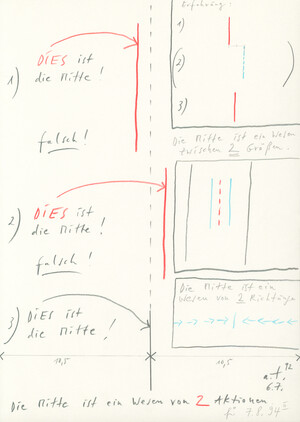 Erfahrung:
1)
2)
3)
1)
DIES ist
die Mitte!
falsch!
Die Mitte ist ein Wesen
zwischen 2 Größen.
2)
DIES ist
die Mitte!
falsch!
3)
DIES ist
die Mitte!
Die Mitte ist ein
Wesen von 2 Richtungen
10,5
10,5
92
6.7.
Die Mitte ist ein Wesen von 2 Aktionen
7.8.94